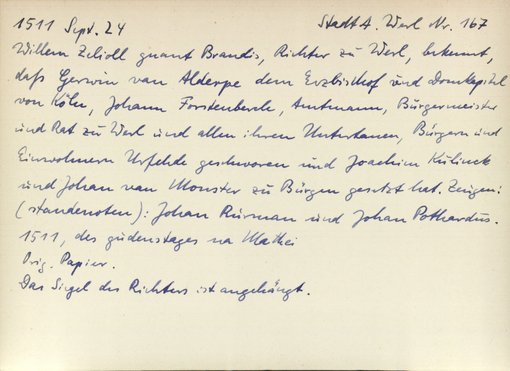 1511 Sept. 24 Stadt A. Werl Nr. 167
Willem Zelioll gnant Brandis, Richter zu Werl, bekennt,
daß Gerwin van Alderpe dem Erzbischof und Domkapitel
von Köln, Johann Forstenberch, Amtmann, Bürgermeister
und Rat zu Werl und allen ihren Untertanen, Bürgern und
Einwohnern Urfehde geschworen und Joachim Külinck
und Johan van Monster zu Bürgen gesetzt hat. Zeugen:
(standenoten): Johan Rürman und Johan Pothardus.
1511, des gudenstages na Mathei
Orig. Papier.
Das Siegel des Richters ist angehängt.